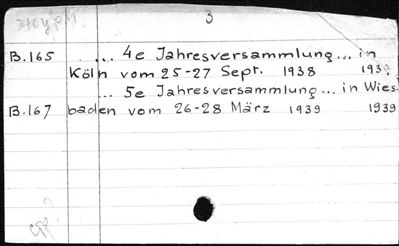 3
B.165 ... 4e Jahresversammlung... in
Köln vom 25-27 Sept. 1938 193
... 5e Jahresversammlung... in Wies.
B.167 baden vom 26-28 März 1939 1939